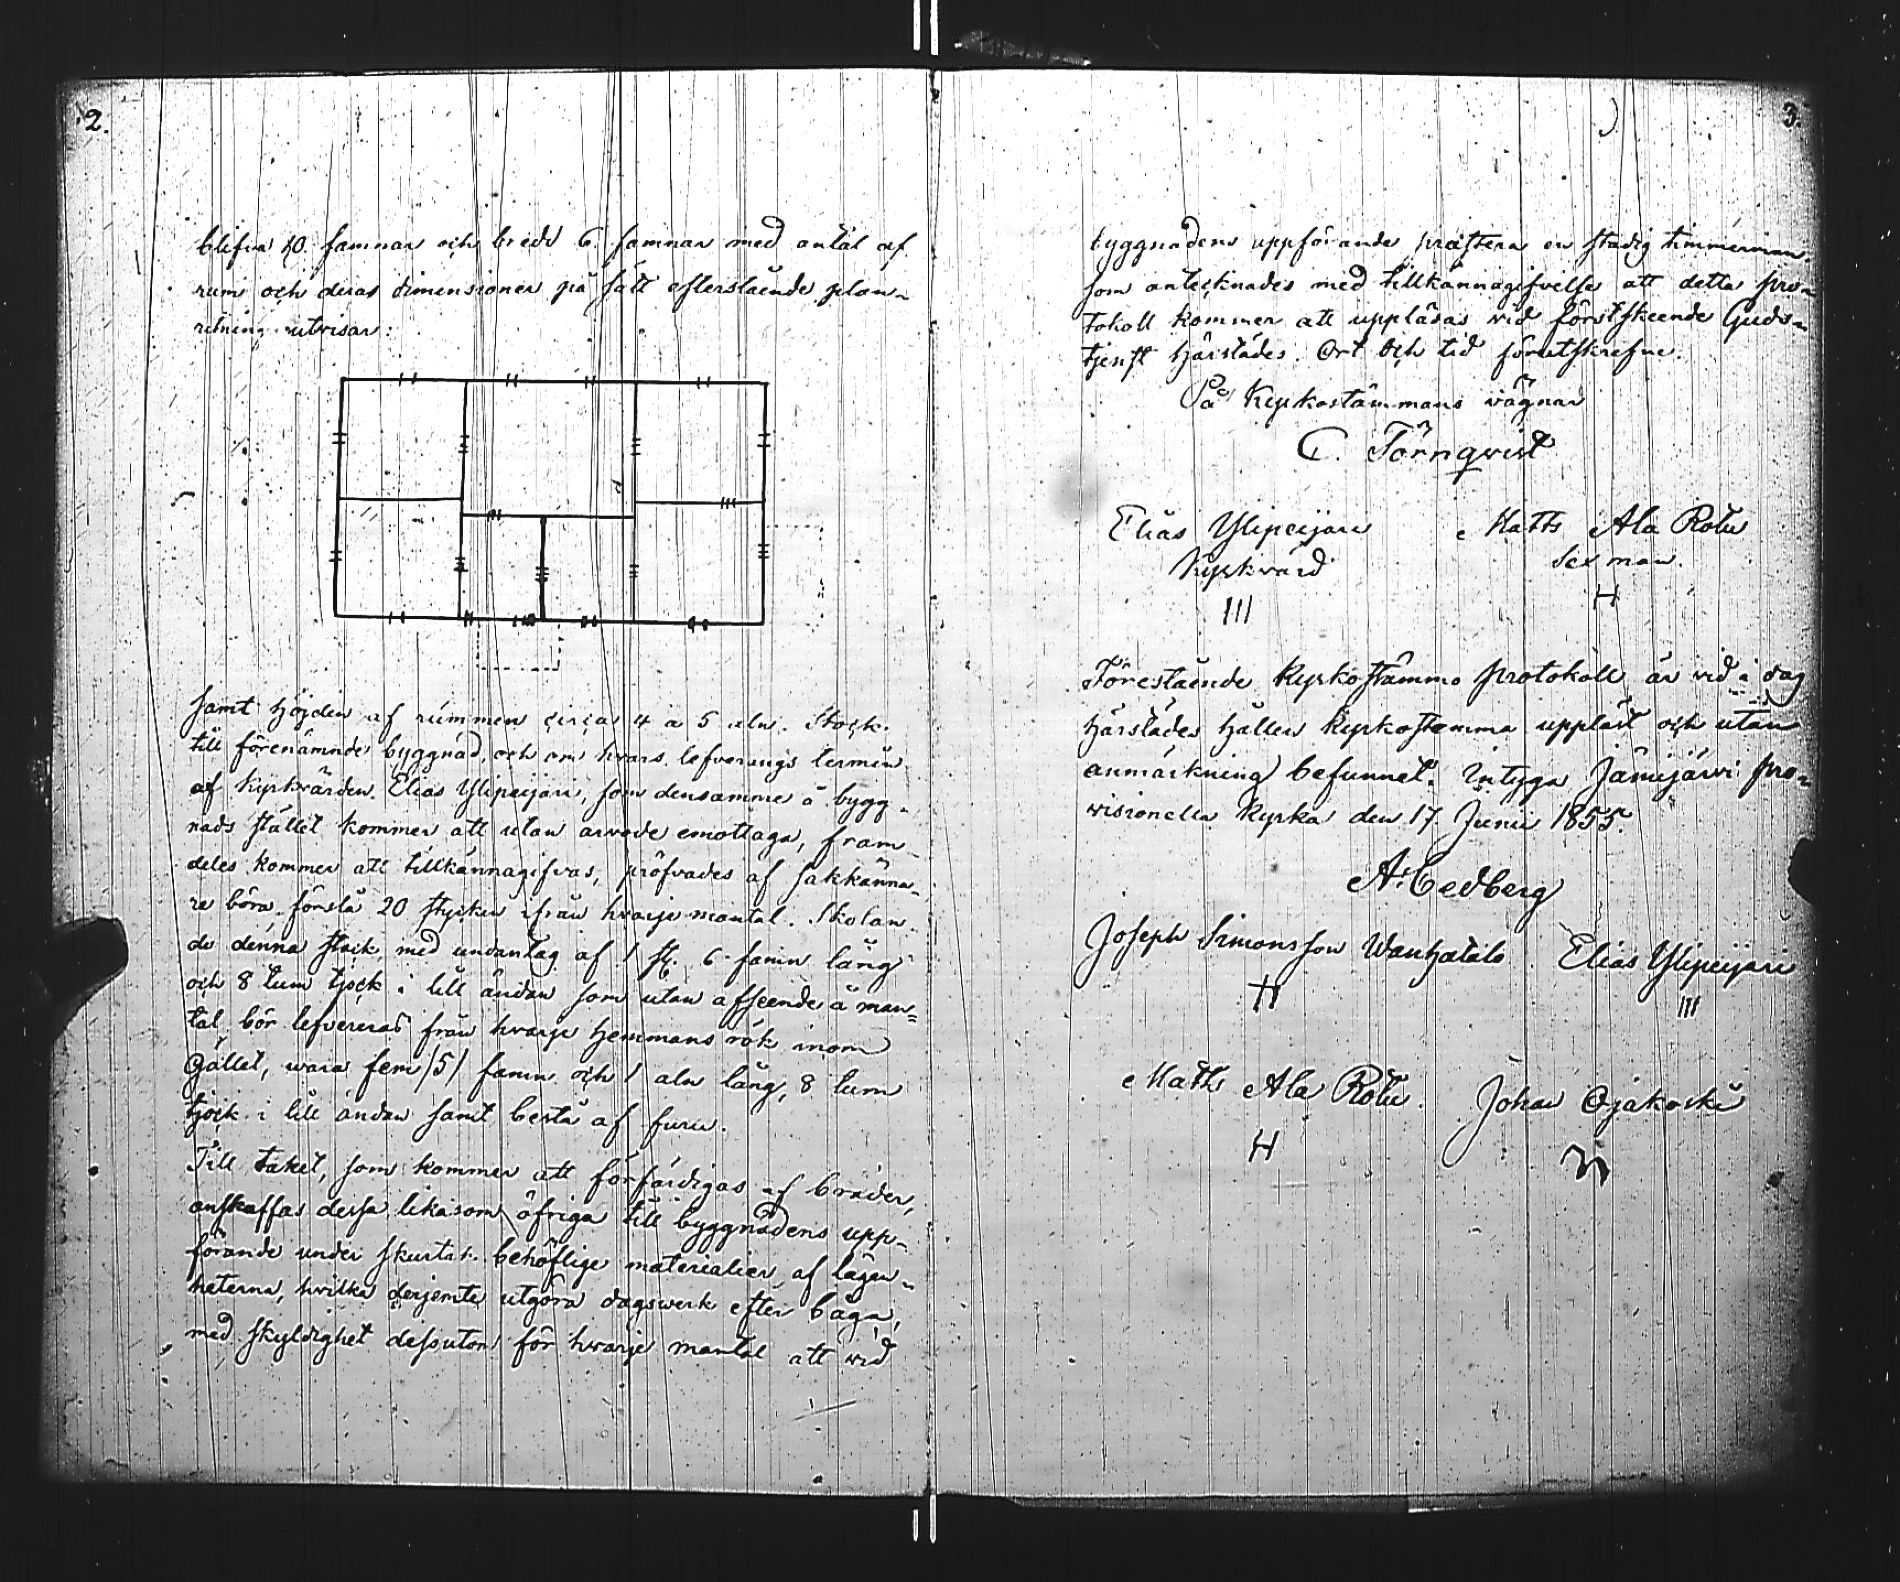 2.
blifva 10. famnar och bredd 6. famnar med antal af
rum och deras dimensioner på sätt efterstående plan-
ritning utvisar:
samt höjden af rummen circa 4 a 5 aln. Stock.
till förenämnde byggnad, och om hvars lefverings termin
af kyrkvärden Elias Ylipeijari, som densamme å bygg-
nads stället kommer att utan arvode emottaga, fram-
deles kommer att tillkännagifvas, pröfvades af sakkänna-
re böra förslå 20 stycken ifrån hvarje mantal. Skolan-
de denna stock, med undantag af 1 st. 6 famn lång
och 8 tum tjock i lill ändan som utan afseende å man-
tal bör lefvereras från hvarje hemmans rök inom
Gället, wara fem /5/ famn och 1 aln lång, 8 tum
tjock i lill ändan samt bestå af furu.
Till taket, som kommer att förfärdigas af bräder,
anskaffas dessa likasom öfriga till byggnadens upp-
förande under behöflige materialier, af lägen-
heterna, hvilka derjemte utgöra dagswerk efter båga,
med skyldighet dessutom för hvarje mantal att vid
3.
byggnadens uppförande præstera en stadig timmerman.
som antecknades med tillkännagifvelse att detta pro-
tokoll kommer att uppläsas vid förstskeende Guds-
tjenst härstädes. Ort och tid förutskrefne.
På Kyrkostämmans vägnar
C. Törnqvist
Elias Ylipeijari Matts Ala Rotu
Kyrkvärd Sexman.
III H
Förestående Kyrkostämmo protokoll är vid i dag
härstädes hållen kyrkostemma uppläst och utan
anmärkning befunnet. Intyga Jämijärvi pro-
visionella kyrka den 17. Junii 1855.
A. Cedberg
Joseph Simonsson Wanhatalo Elias Ylipeijari
H III
Matts Ala Rotu. Johan Ojakoski
H